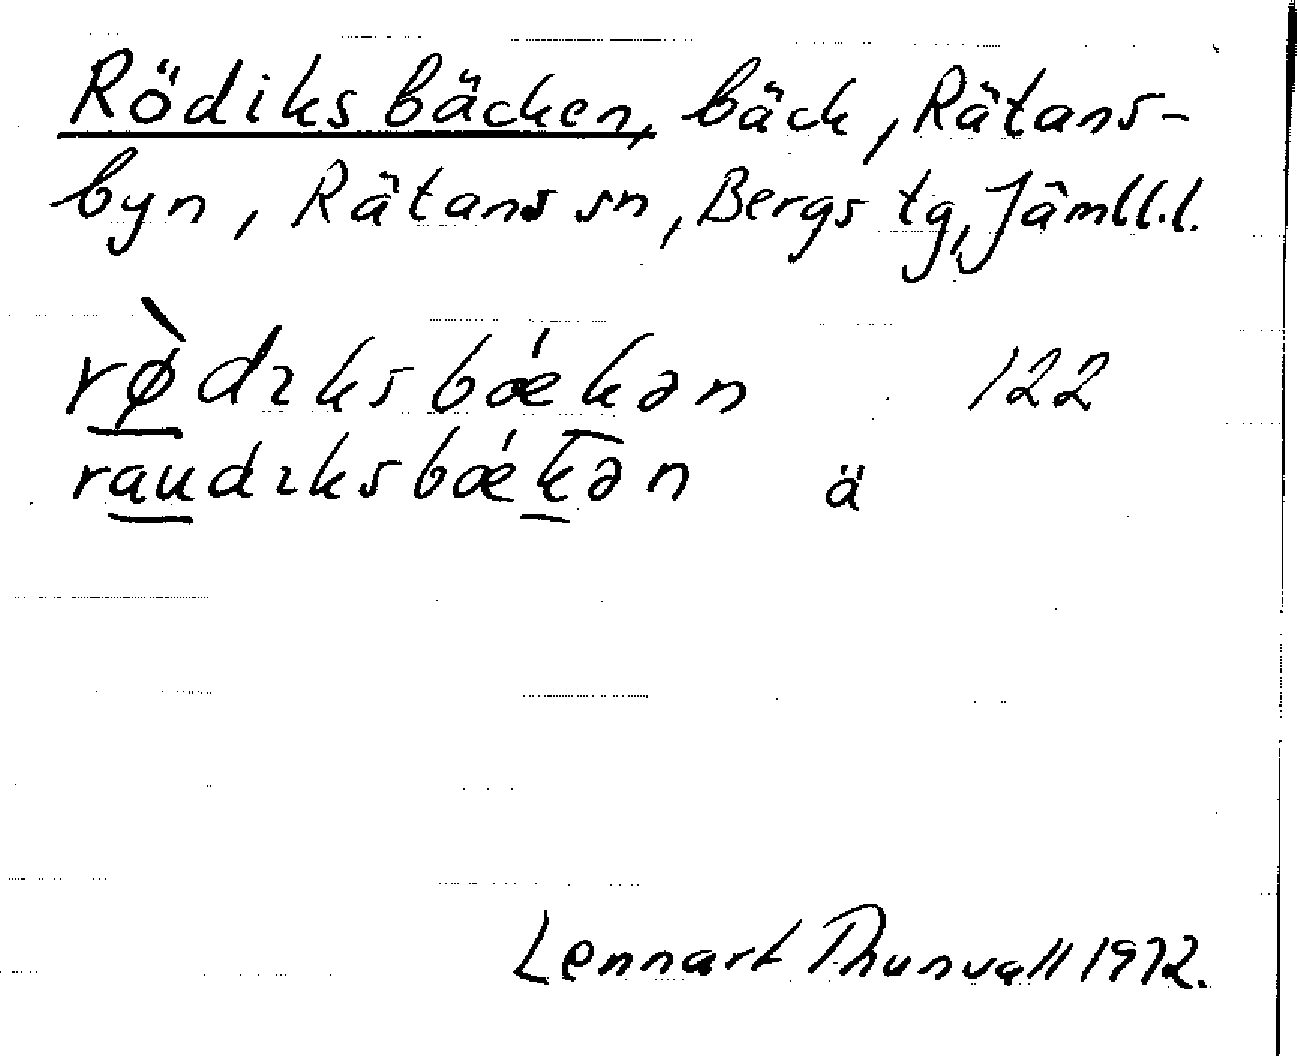 Rödiksbäcken, bäck, Rätans-
byn, Rätans sn, Bergs tg, Jämtl.l.
rø̀dıksbǽkən 122
raudıksbǽkən ä
Lennart Thunvall 1972.